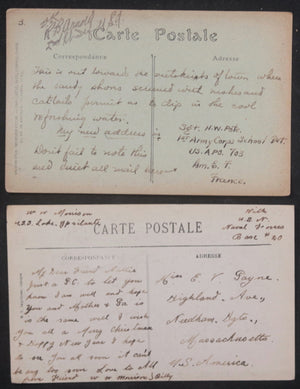 3.
Carte Postale
Correspondance
Adresse
This is out toward the outskirts of town where
the sandy shores screened with rushes and
cattails permit us to dip in the cool
refreshing water.
My new address is
Don't fail to note this
and direct all mail
Sgt. H.W.
1st Army Corps School Det.
U.S. APO. 703
Am. E. F.
France.
CARTE POSTALE
CORRESPONDANCE
ADRESSE
W H Morrison
With
U.S. N.
Naval Forces
Base # 20
My Dear Friend Millie
Just a P.C. to let you
know I am well and hope
You and Mother & Pa is
in the same well I wish
you all a Merry Christmas
& Happy New Year & hope
to see You all soon it can't
be long now Love to All
Friend W W Morrison Billy
Miss E. V. Payne.
Highland, Ave,
Needham, Hgts,
Massachusetts.
U.S. America.